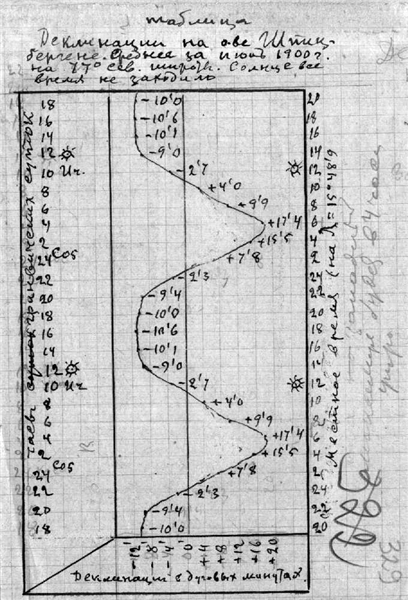 таблица
Деклинации на ове Шпиц-
бергене. Среднее за июль 1900 г.
на 77° сев. широты. Солнце все
время не заходило
18 -10'0 20
16 -10'6 18
14 -10'1 16
12 -9'0 14
10 Ич. -2'7 12
8 +4'0 10
6 +9'9 8
4 +17'4 6
2 +15'5 4
24 Cos +7'8 2
22 -2'3 24
20 -9'4 22
18 -10'0 20
16 -10'6 18
14 -10'1 16
12 -9'0 14
10 Ич. -2'7 12
8 +4'0 10
6 +9'9 8
4 +17'4 6
2 +15'5 4
24 Cos +7'8 2
22 -2'3 24
20 -9'4 22
18 -10'0 20
Часы гринвичских суток
Местное время (на λ=15°48'9
-12' -8' -4' 0 +4 +8 +12 +16 +20
Деклинации в дуговых минутах.